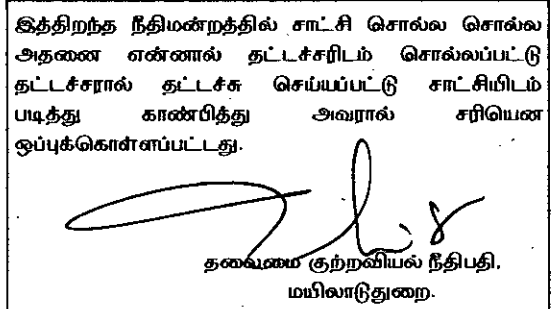 இத்திறந்த நீதிமன்றத்தில் சாட்சி சொல்ல சொல்ல
அதனை என்னால் தட்டச்சரிடம் சொல்லப்பட்டு
தட்டச்சரால் தட்டச்சு செய்யப்பட்டு சாட்சியிடம்
படித்து காண்பித்து அவரால் சரியென
ஒப்புக்கொள்ளப்பட்டது.
தலைமை குற்றவியல் நீதிபதி,
மயிலாடுதுறை.